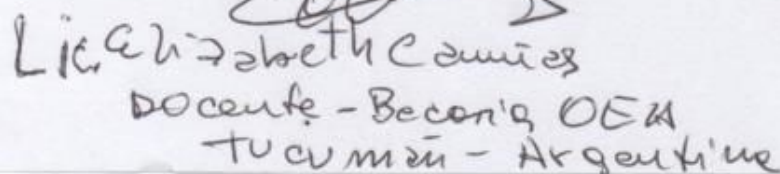 Lic. Elizabeth Camies
Docente - Becaria OEA
Tucumán - Argentina